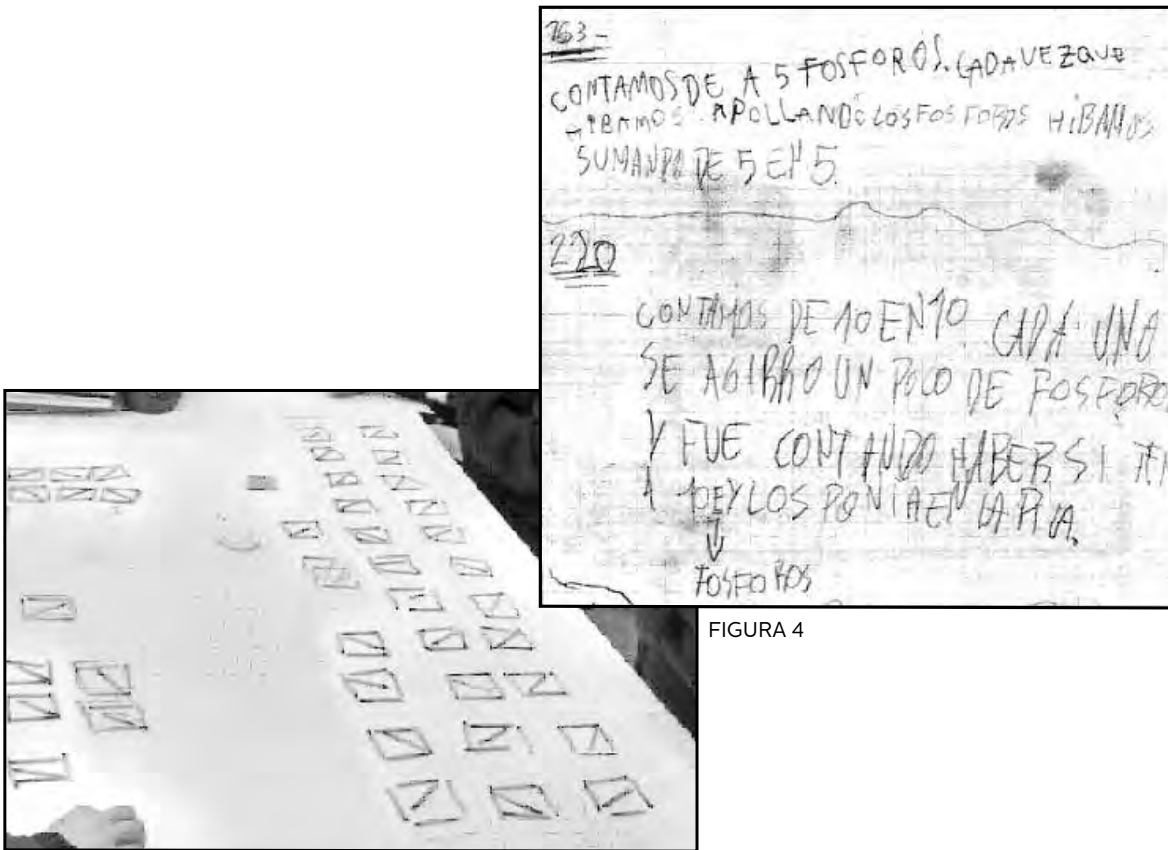 163-
CONTAMOS DE A 5 FOSFOROS. CADA VEZ QUE
HIBAMOS APOLLANDO LOS FOSFOROS HIBAMOS
SUMANDO DE 5 EN 5.
220
CONTAMOS DE 10 EN 10. CADA UNA
SE AGIRRO UN POCO DE FOSFORO
Y FUE CONTANDO HABER SI
1 DE Y LOS PONIA EN LA PILA.
FOSFOROS
FIGURA 4